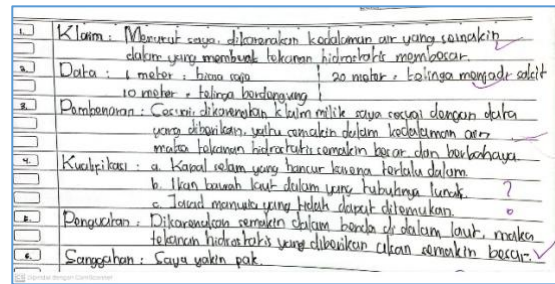 1. Klaim : Menurut saya, dikarenakan kedalaman air yang semakin
dalam yang membuat tekanan hidrostatis membesar.
2. Data : 1 meter, biasa saja | 20 meter, telinga menjadi sakit
10 meter, telinga berdengung
3. Pembenaran : Sesuai, dikarenakan klaim milik saya sesuai dengan data
yang diberikan, yaitu semakin dalam kedalaman air
maka tekanan hidrostatis semakin besar dan berbahaya
4. Kualifikasi : a. Kapal selam yang hancur karena terlalu dalam
b. Ikan bawah laut dalam yang tubuhnya lunak. ?
c. Jasad manusia yang tidak dapat ditemukan.
5. Penguatan : Dikarenakan semakin dalam benda di dalam laut, maka
tekanan hidrostatis yang diberikan akan semakin besar.
6. Sanggahan : Saya yakin pak.
CS Dipindai dengan CamScanner